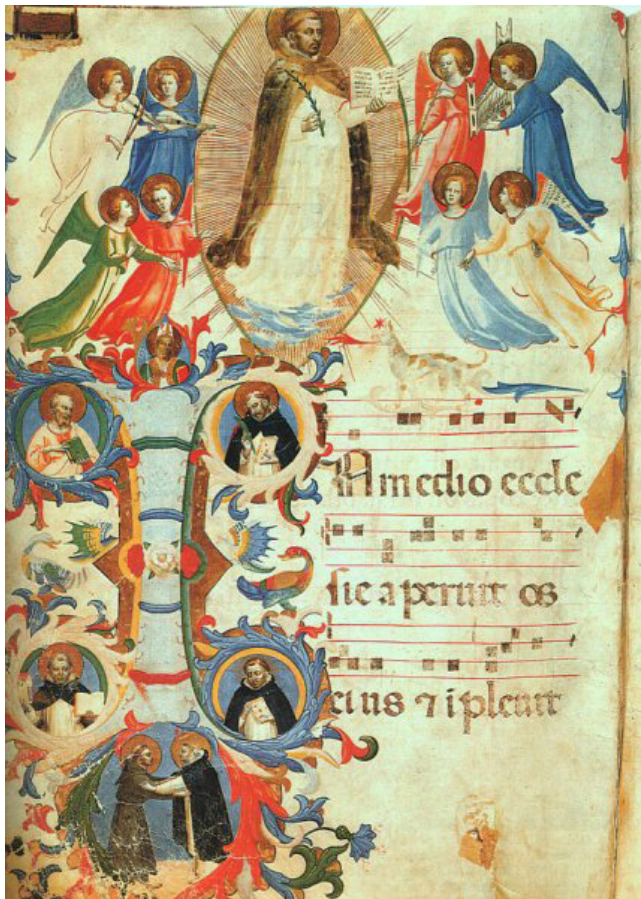 In medio eccle
sie aperuit os
eius ⁊ ĩpleuit